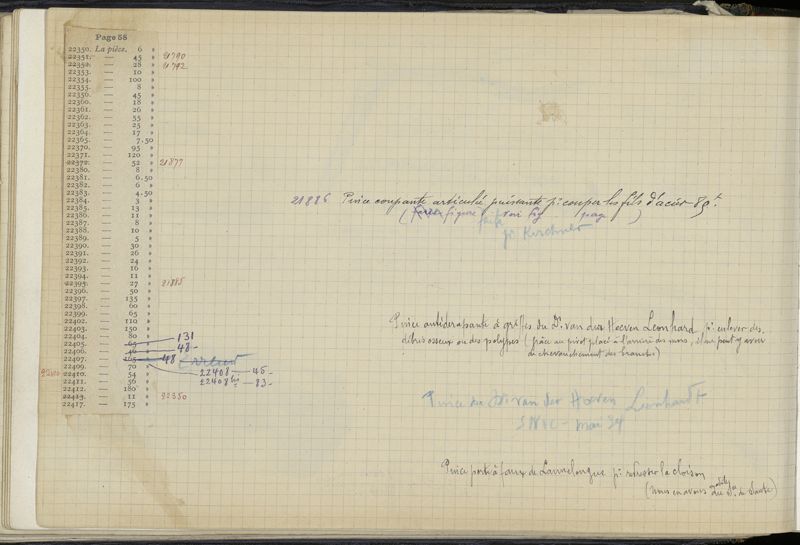 Page 58
22350. La pièce. 6 »
22351. — 45 » 21790
22352. — 28 » 21792
22353. — 10 »
22354. — 100 »
22355. — 8 »
22356. — 45 »
22360. — 18 »
22361. — 26 »
22362. — 55 »
22363. — 25 »
22364. — 17 »
22365. — 7.50
22370. — 95 »
22371. — 120 »
22372. — 52 » 21877
22380. — 8 »
22381. — 6.50
22382. — 6 »
22383. — 4.50
22384. — 3 »
22385. — 13 »
22386. — 11 »
22387. — 8 »
22388. — 10 »
22389. — 5 »
22390. — 30 »
22391. — 26 »
22392. — 24 »
22393. — 16 »
22394. — 11 »
22395. — 27 » 21885
22396. — 50 »
22397. — 135 »
22398. — 60 »
22399. — 65 »
22402. — 110 »
22403. — 150 »
22404. — 80 »
22405. — 131
22406. — 46 48-
22407. — 165 48
22409. — 70 » 22408 — 45-
22410. — 54 » 22408 bis — 83-
22411. — 36 »
22412. — 180 »
22413. — 11 » 22350
22417. — 175 »
21886 Pince coupante articulée puissante pr couper les fils d'acier 89 t.
( figure voir fig page )
pr Kirchner
Pince antidérapante à griffes du Dr. van der Hoeven Leonhard, pr enlever des
débris osseux ou des polypes (grâce au pivot placé à l'arrière des mors, il ne peut y avoir
de chevauchement des branches)
Pince du Dr van der Hoeven Leonhardt
mai 34
Pince porte à faux de Lannelongue pr redresser la cloison
(nous en avons du Dr. de Santé)